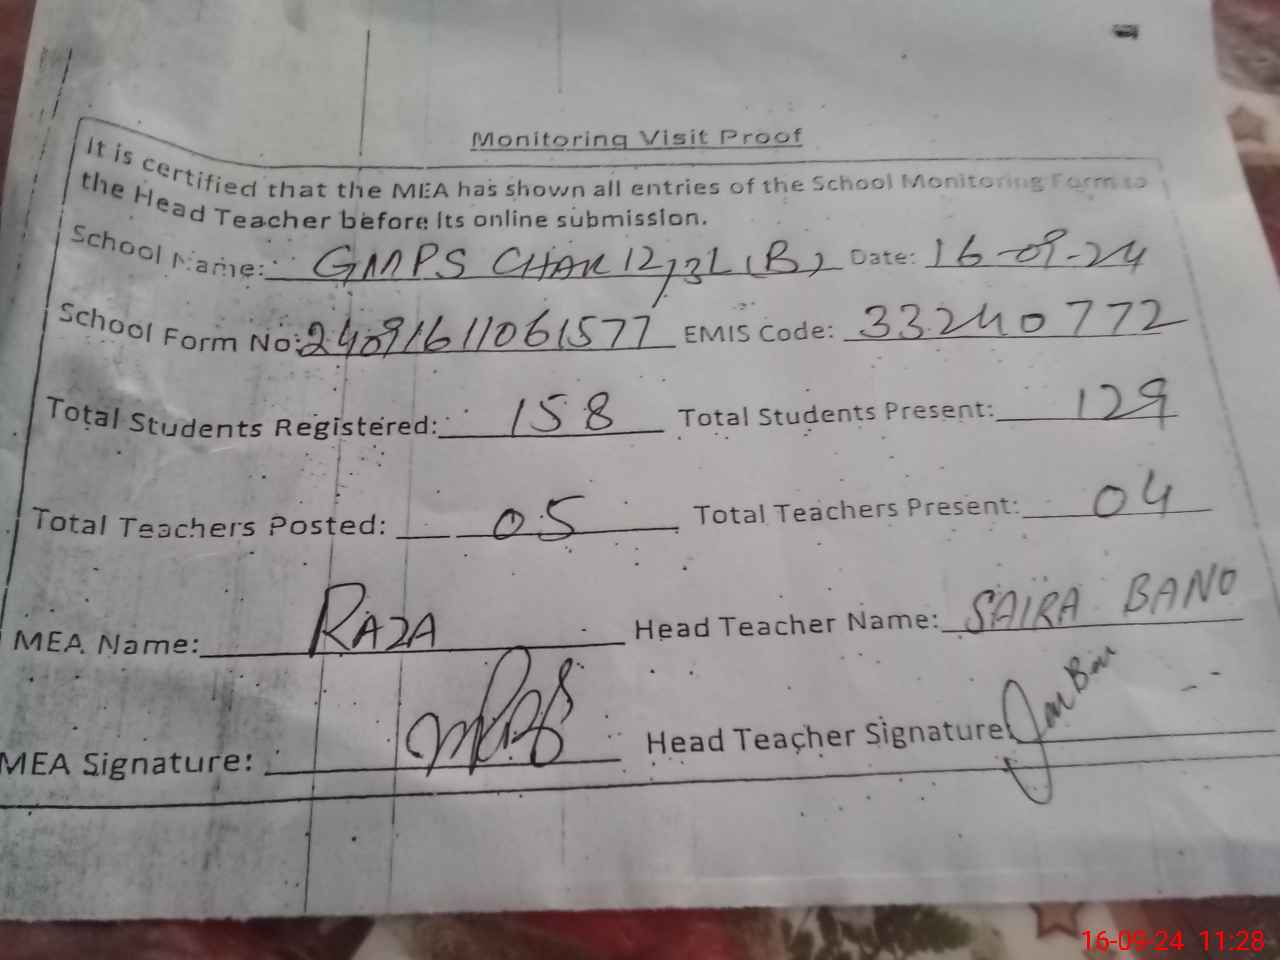 Monitoring Visit Proof
It is certified that the MEA has shown all entries of the School Monitoring Form to
the Head Teacher before its online submission.
School Name: GMPS CHAK 12/3L (B) Date: 16-09-24
School Form No: 24091611061577 EMIS Code: 33240772
Total Students Registered: 158 Total Students Present: 129
Total Teachers Posted: 05 Total Teachers Present: 04
MEA Name: RAZA Head Teacher Name: SAIRA BANO
MEA Signature: Head Teacher Signature:
16-09-24 11:28